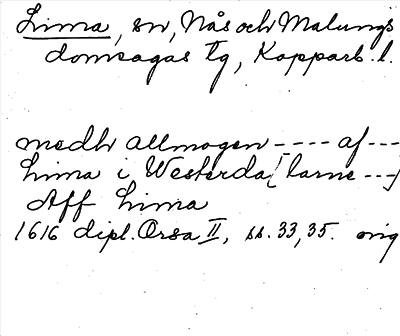 Lima, sn, Nås och Malungs
domsagas tg, Kopparb. l.
medh allmogen ---- af ---
Lima i Westerda[larne ---
Aff Lima
1616 dipl. Orsa II, ss. 33, 35. orig